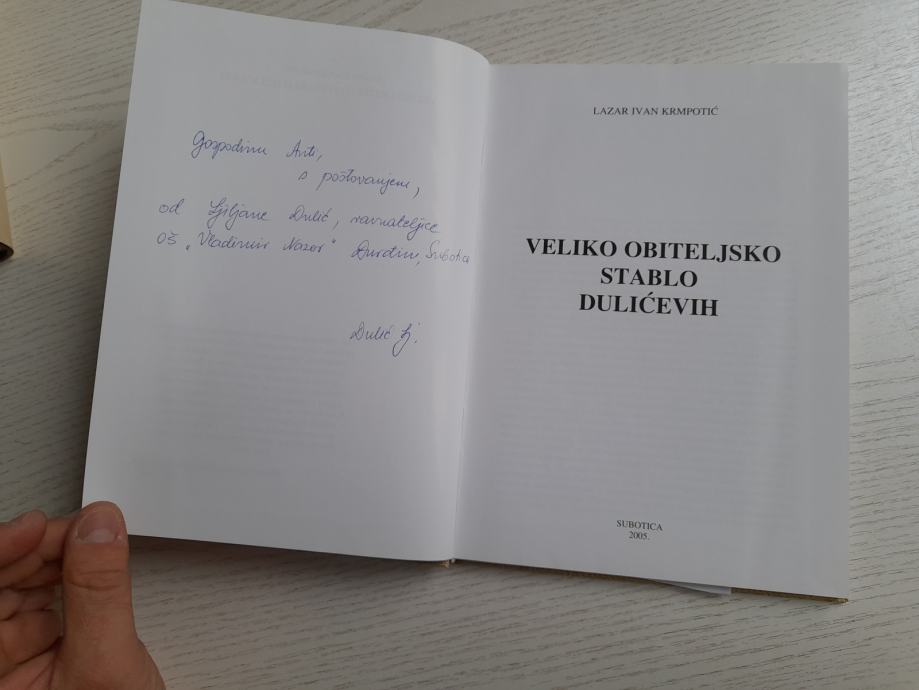 Gospodinu Anti,
s poštovanjem,
od Ljiljane Dulić, ravnateljice
OŠ "Vladimir Nazor" Đurđin, Subotica
Dulić Lj.
LAZAR IVAN KRMPOTIĆ
VELIKO OBITELJSKO
STABLO
DULIĆEVIH
SUBOTICA
2005.